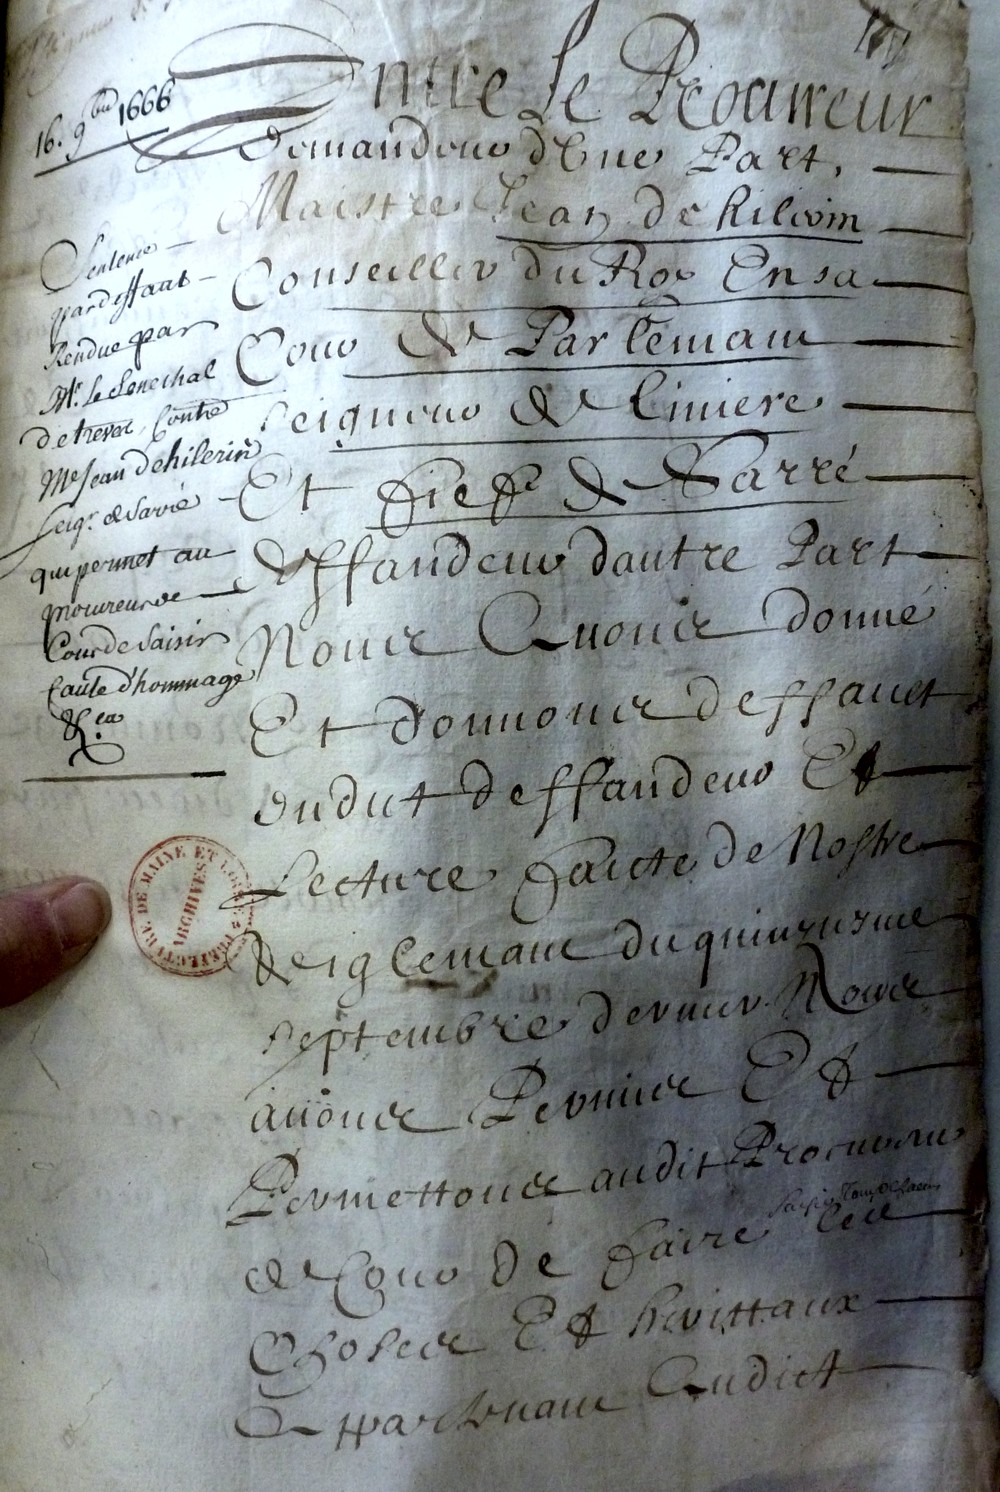 16. 9bre 1666
Sentence
par deffaut
Rendue par
Mr. le Senechal
de trever, Contre
Me Jean dehilerin
seigr. de Sarié
qui permet au
procureur de
Cour de Saisir
faute d'hommage
&ca
Entre Le Procurreur
demandeur d'Une Part,
Maistre Jean de hilerin
Conseiller du Roy En sa
Cour de Parlemant
seigneur de liniere
Et fief de Sarré
deffandeur dautre Part
Nous Auons donné
Et donnons deffaut
dudit deffandeur Et
Lecture faicte de Nostre
Reiglemant du quinziesme
septembre dernier Nous
auons Permis Et
Permettons audit Procureur
de Cour de faire saisir tous & chacuns les
Choses Et heritaux
Appartenant Audict
PREFECTURE DE MAINE ET LOIRE
ARCHIVES